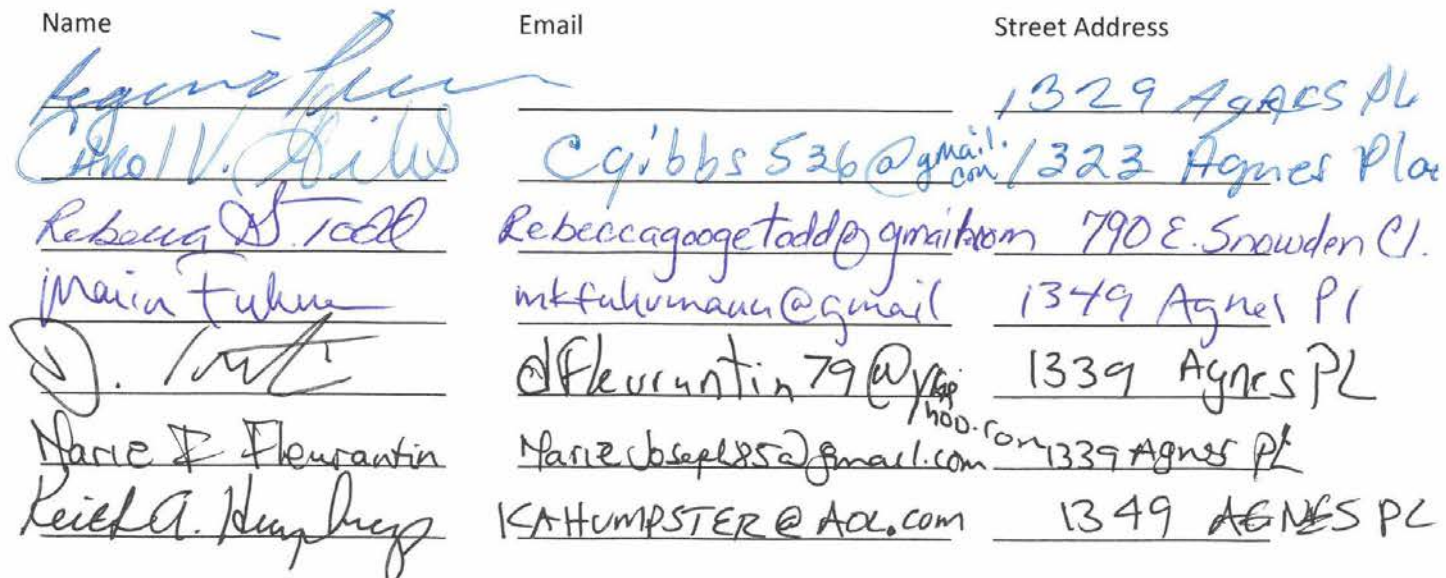 Name Email Street Address
1329 Agnes PL
Carol V. Gibbs Cgibbs536@gmail.com 1323 Agnes Place
Rebecca G. Todd Rebeccagoogetodd@gmail.com 790 E. Snowden Cl.
Maria mkfuhrmann@gmail 1349 Agnes Pl
D. dfleurantin79@yahoo.com 1339 Agnes PL
Marie F Fleurantin MarieJoseph85@gmail.com 1339 Agnes PL
Keith A. Humphreys KAHUMPSTER@AOL.com 1349 AGNES PL